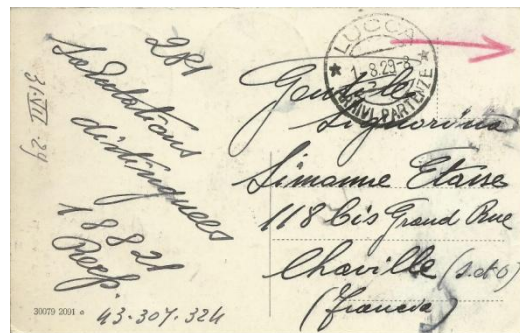 31·VII·29
281
Salutations
distinguées
18821
43-307-324
30079 2091
LUCCA
1-8.29-8
ARRIVI-PARTENZE
Gentile
Signorina
Simanne
118 bis Grand Rue
Chaville (S.et O)
(Francia)